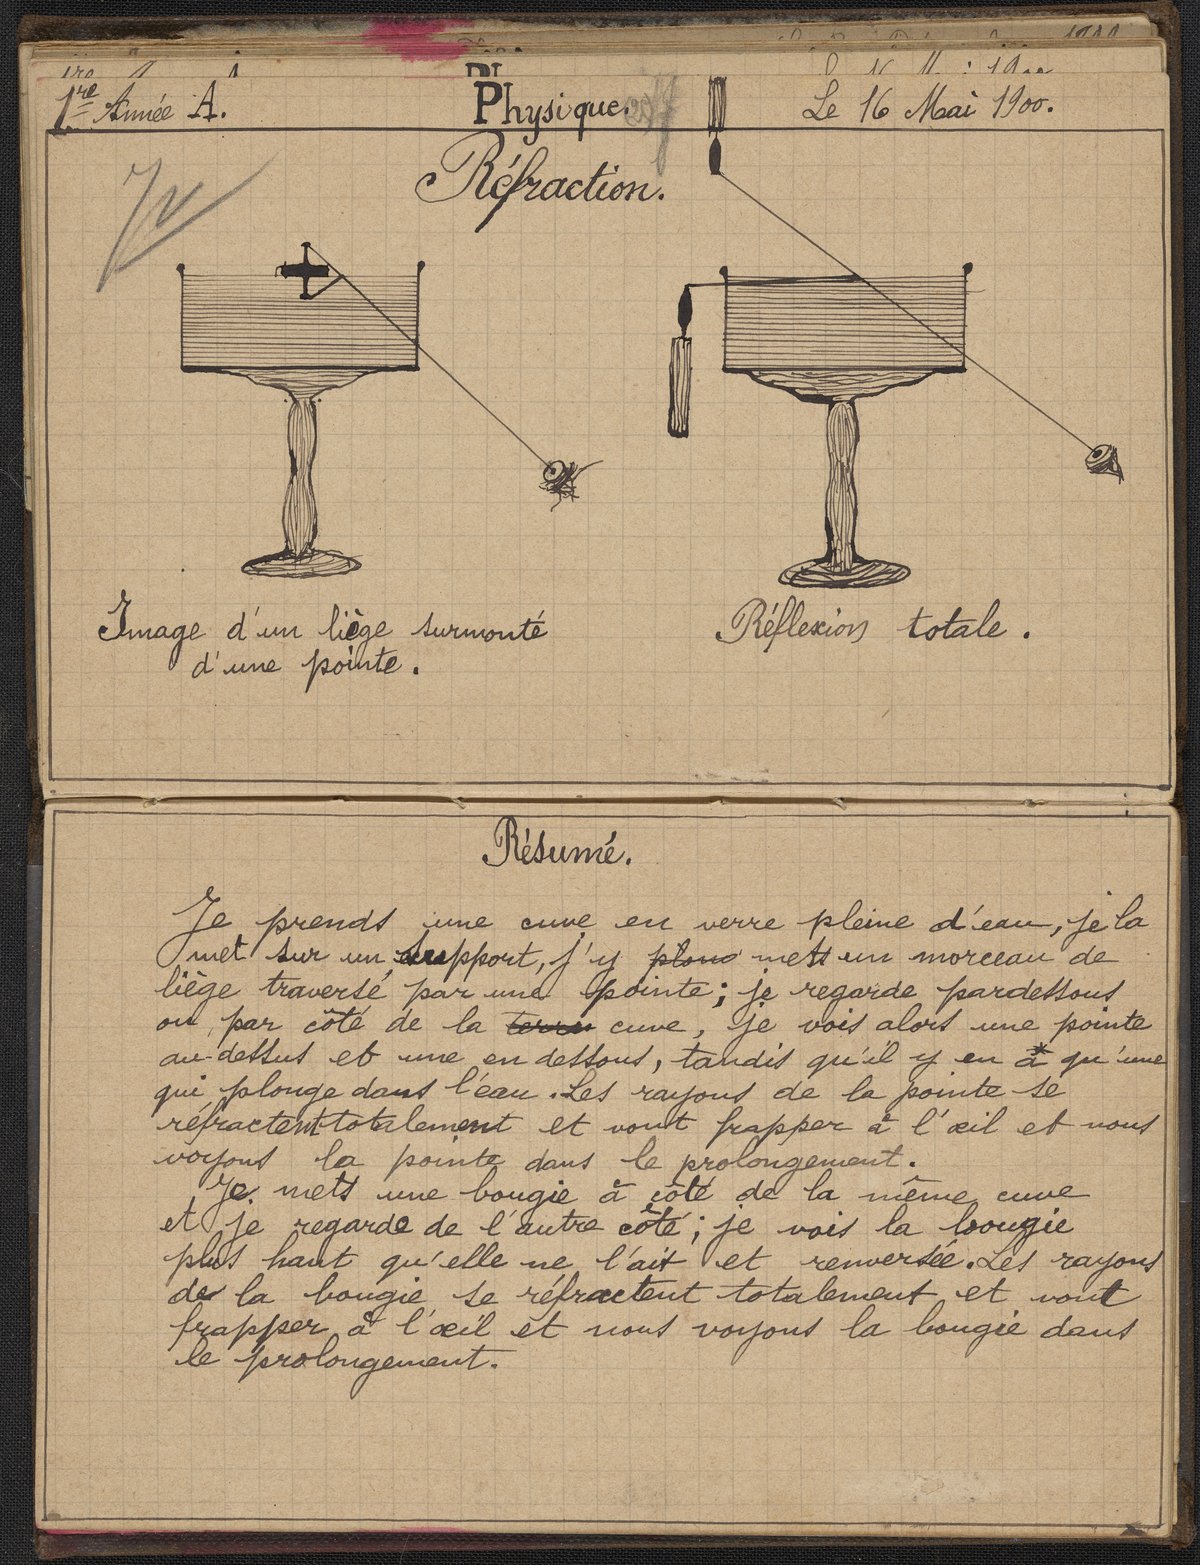 1re Année A.
Physique.
Le 16 Mai 1900.
Réfraction.
Image d'un liège surmonté
d'une pointe.
Réflexion totale.
Résumé.
Je prends une cuve en verre pleine d'eau, je la
met sur un support, j'y plong mets un morceau de
liège traversé par une pointe; je regarde pardessous
ou par côté de la cuve, je vois alors une pointe
au-dessus et une en dessous, tandis qu'il y en à qu'une
qui plonge dans l'eau. Les rayons de la pointe se
réfractent totalement et vont frapper à l'œil et nous
voyons la pointe dans le prolongement.
Je mets une bougie à côté de la même cuve
et je regarde de l'autre côté; je vois la bougie
plus haut qu'elle ne l'ait et renversée. Les rayons
de la bougie se réfractent totalement et vont
frapper à l'œil et nous voyons la bougie dans
le prolongement.